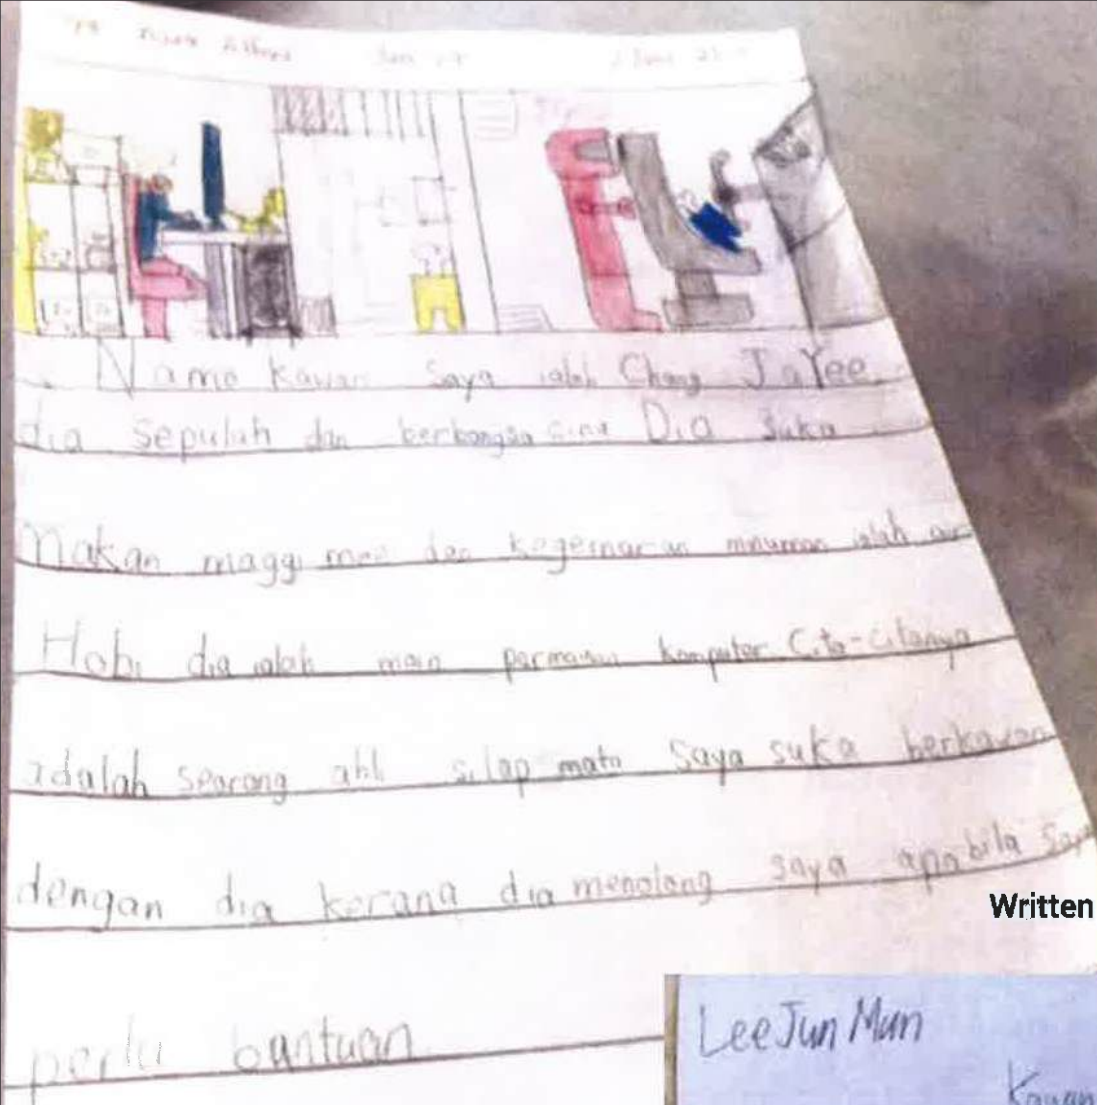 Name kawan saya ialah Chang JaYee
dia sepuluh dan berbangsa cina Dia suka
makan maggi mee dan kegemaran minuman ialah air
Hobi dia ialah main permainan komputer Cita-citanya
adalah seorang ahli silap mata Saya suka berkawan
dengan dia kerana dia menolong saya apabila say
perlu bantuan
Written
Lee Jun Mun
Kawan